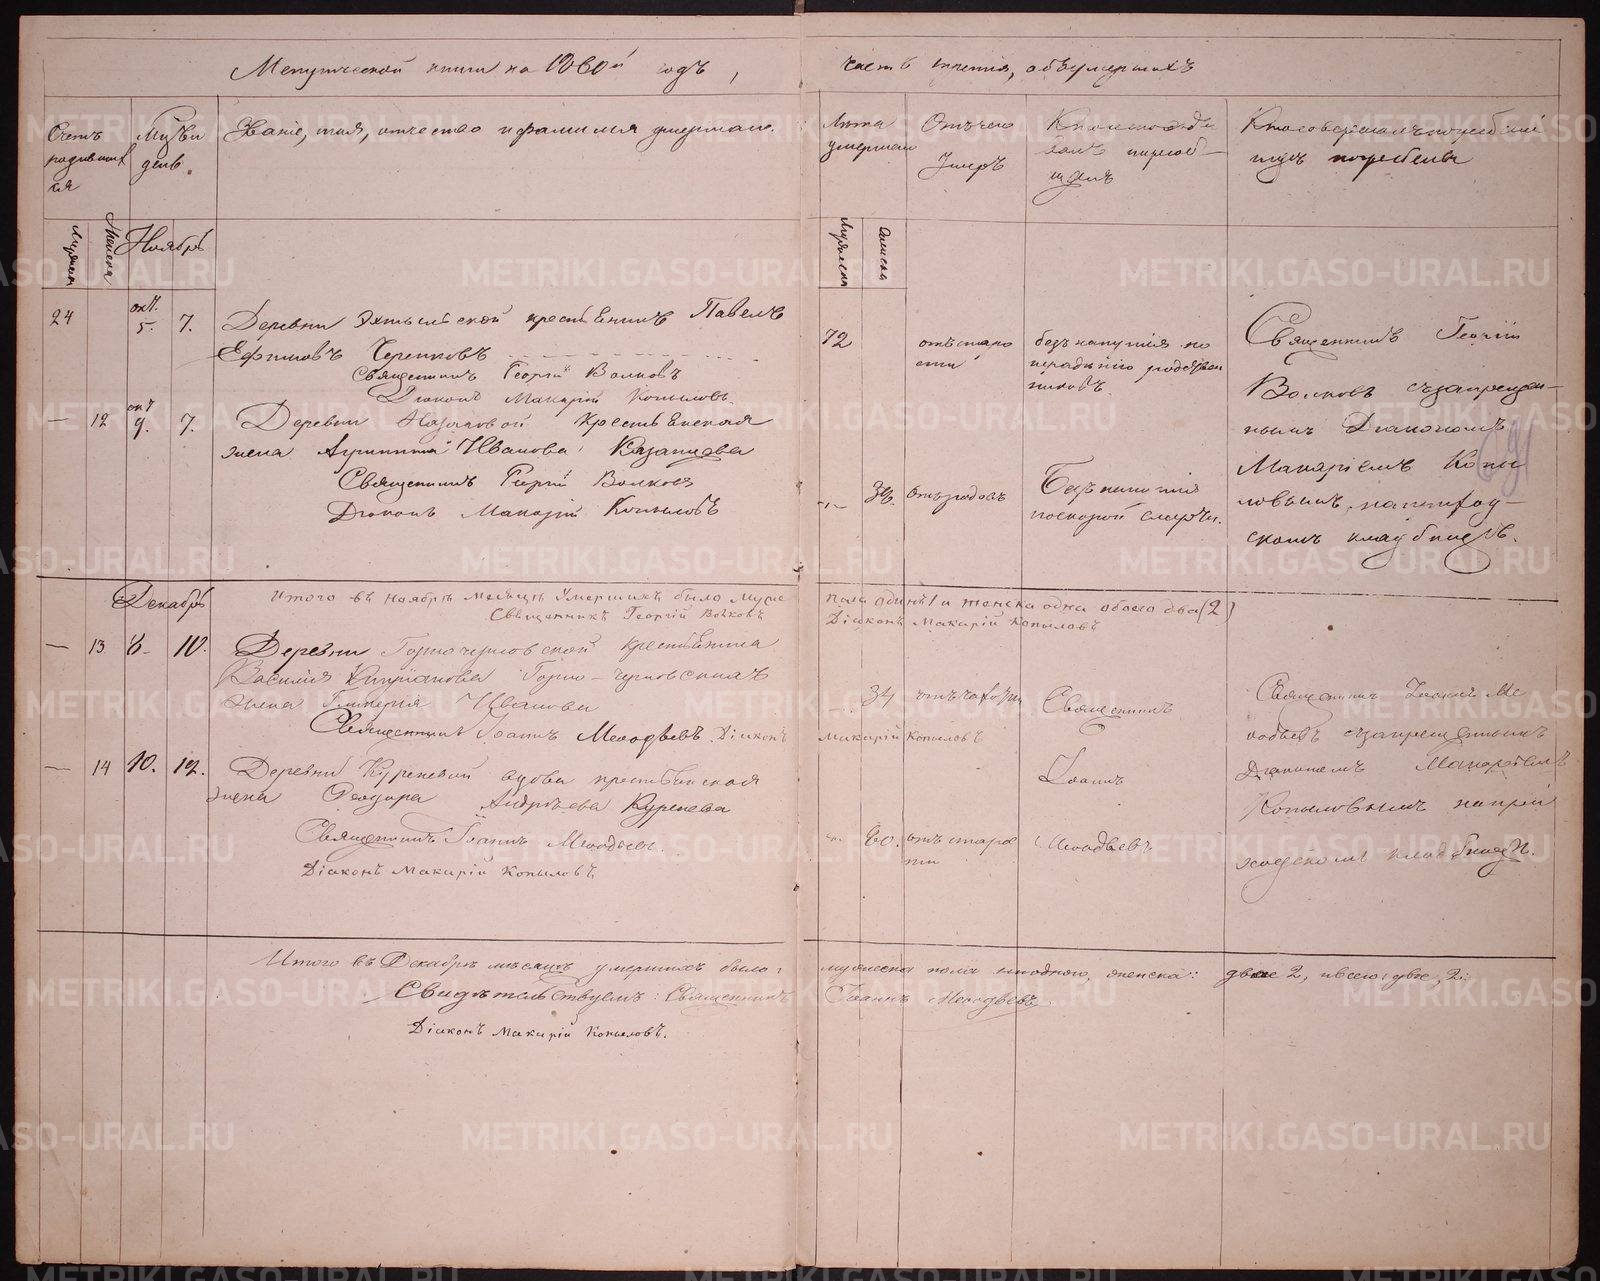 Метрической книги на 1860й годъ,
часть третія, объ умершихъ
Счетъ
Мѣсяцъ и
день.
Званіе, имя, отчество и фамилія умершаго.
Лѣта
умершаго
Отъ чего
умеръ
Кто исповѣды
валъ и пріоб-
щалъ
Кто совершалъ погребеніе
погребены
Мужеска
Женска
Ноябрь
Мужеска
Женска
24
окт.
5.
7.
Деревни крестьянинъ Павелъ
Ефимовъ Черепковъ
Священникъ Георгій Волковъ
Діаконъ Макарій Копыловъ.
72
отъ старо
сти
безъ напутія по
нерадѣнію родствен
никовъ.
Священникъ Георгій
Волковъ съ запрещен-
нымъ Діакономъ
Макаріемъ Копы
ловымъ, на приход-
скомъ кладбищѣ.
— 12
окт
9.
7.
Деревни Казаковой крестьянская
жена Агрипина Иванова Казанцева
Священникъ Георгій Волковъ
Діаконъ Макарій Копыловъ
отъ родовъ
Безъ напутія
по скорой смерти.
Декабрь
Итого въ ноябрѣ месяцѣ умершихъ было муже
ска пола одинъ 1 и женска одна обоего два (2)
Священникъ Георгій Волковъ
Діаконъ Макарій Копыловъ
— 13
8
10.
Деревни крестьянина
Василія
жена Гликерія Иванова
Священникъ Іоаннъ Меѳодьевъ. Діаконъ
Макарій Копыловъ
34
Священникъ
Іоаннъ
Меѳодьевъ
Священникъ Іоаннъ Ме
ѳодьевъ съ запрещеннымъ
Діакономъ Макаріемъ
Копыловымъ на при
ходскомъ кладбищѣ.
— 14
10.
12.
Деревни Куреневой вдова крестьянская
жена Ѳеодора Андрѣева Куренева
Священникъ Іоаннъ Меѳодьевъ.
Діаконъ Макарій Копыловъ.
60.
отъ старо
сти
Итого въ Декабрѣ мѣсяцѣ умершихъ было:
мужеска пола ни одного, женска: двое 2, и всего: двѣ, 2.
Свидѣтельствуемъ: Священникъ
Іоаннъ Меѳодьевъ
Діаконъ Макарій Копыловъ.
METRIKI.GASO-URAL.RU